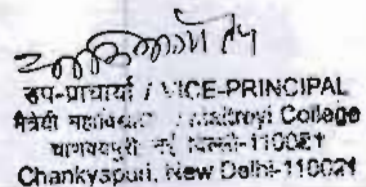 उप-प्राचार्या / VICE-PRINCIPAL
मैत्रेयी / Maitreyi College
चाणक्यपुरी, नई दिल्ली-110021
Chankyapuri, New Delhi-110021